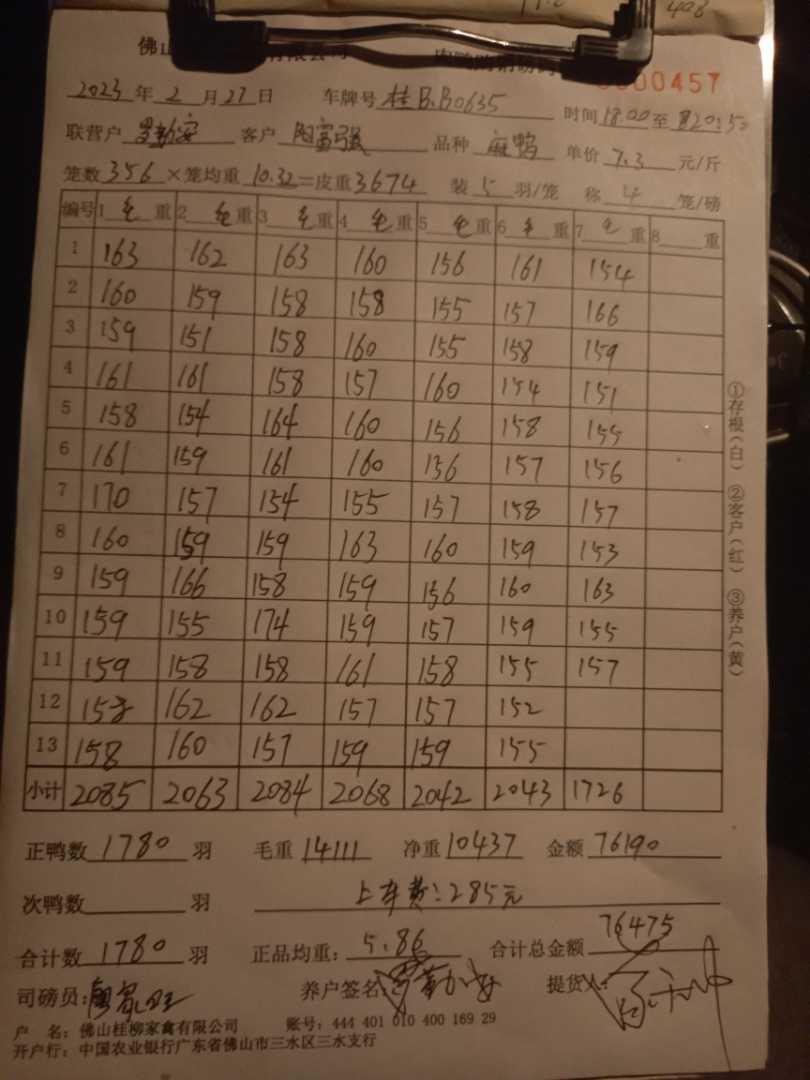 408
佛山 有限公司
0000457
2023年2月27日 车牌号 桂B.B0635 时间18:00至20:50
联营户 客户 阳富强 品种 麻鸭 单价 7.3 元/斤
笼数 356 ×笼均重 10.32 =皮重 3674 装 5 羽/笼 称 4 笼/磅
编号 1 毛 重 2 毛 重 3 毛 重 4 毛 重 5 毛 重 6 毛 重 7 毛 重 8 重
1 163 162 163 160 156 161 154
2 160 159 158 158 155 157 166
3 159 151 158 160 155 158 159
4 161 161 158 157 160 154 151
5 158 154 164 160 156 158 155
6 161 159 161 160 156 157 156
7 170 157 154 155 157 158 157
8 160 159 159 163 160 159 153
9 159 166 158 159 156 160 163
10 159 155 174 159 157 159 155
11 159 158 158 161 158 155 157
12 162 162 157 157 152
13 158 160 157 159 159 155
小计 2085 2063 2084 2068 2042 2043 1726
①存根(白) ②客户(红) ③养户(黄)
正鸭数 1780 羽 毛重 14111 净重 10437 金额 76190
次鸭数 羽 上车费:285元
合计数 1780 羽 正品均重: 5.86 合计总金额 76475
司磅员: 养户签名: 提货人:
户 名: 佛山桂柳家禽有限公司 账号: 444 401 010 400 169 29
开户行: 中国农业银行广东省佛山市三水区三水支行